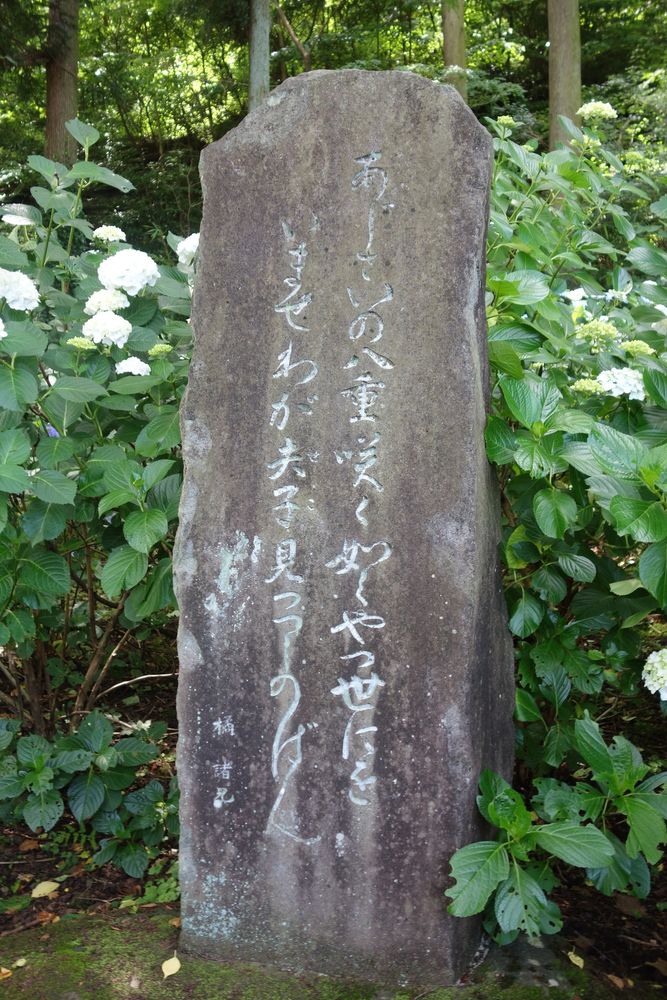 あじさいの八重咲く如くやつ世にを
いませわが夫子見つつしのばん
橘諸兄